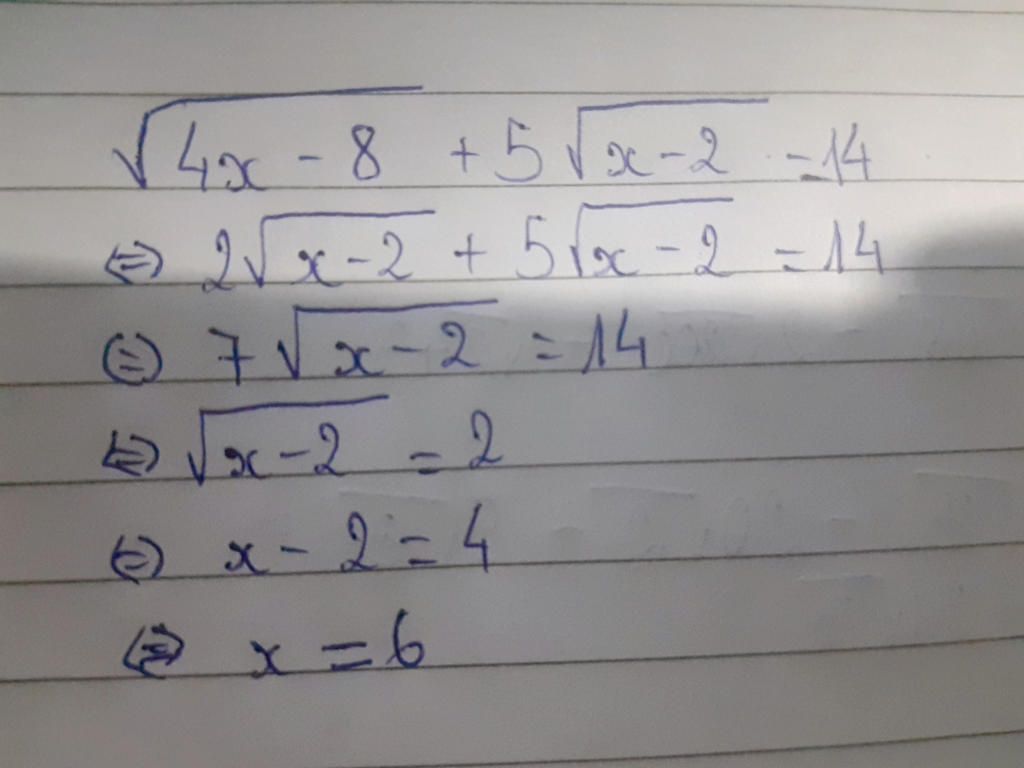 √(4x - 8) + 5√(x - 2) = 14
⇔ 2√(x - 2) + 5√(x - 2) = 14
⇔ 7√(x - 2) = 14
⇔ √(x - 2) = 2
⇔ x - 2 = 4
⇔ x = 6